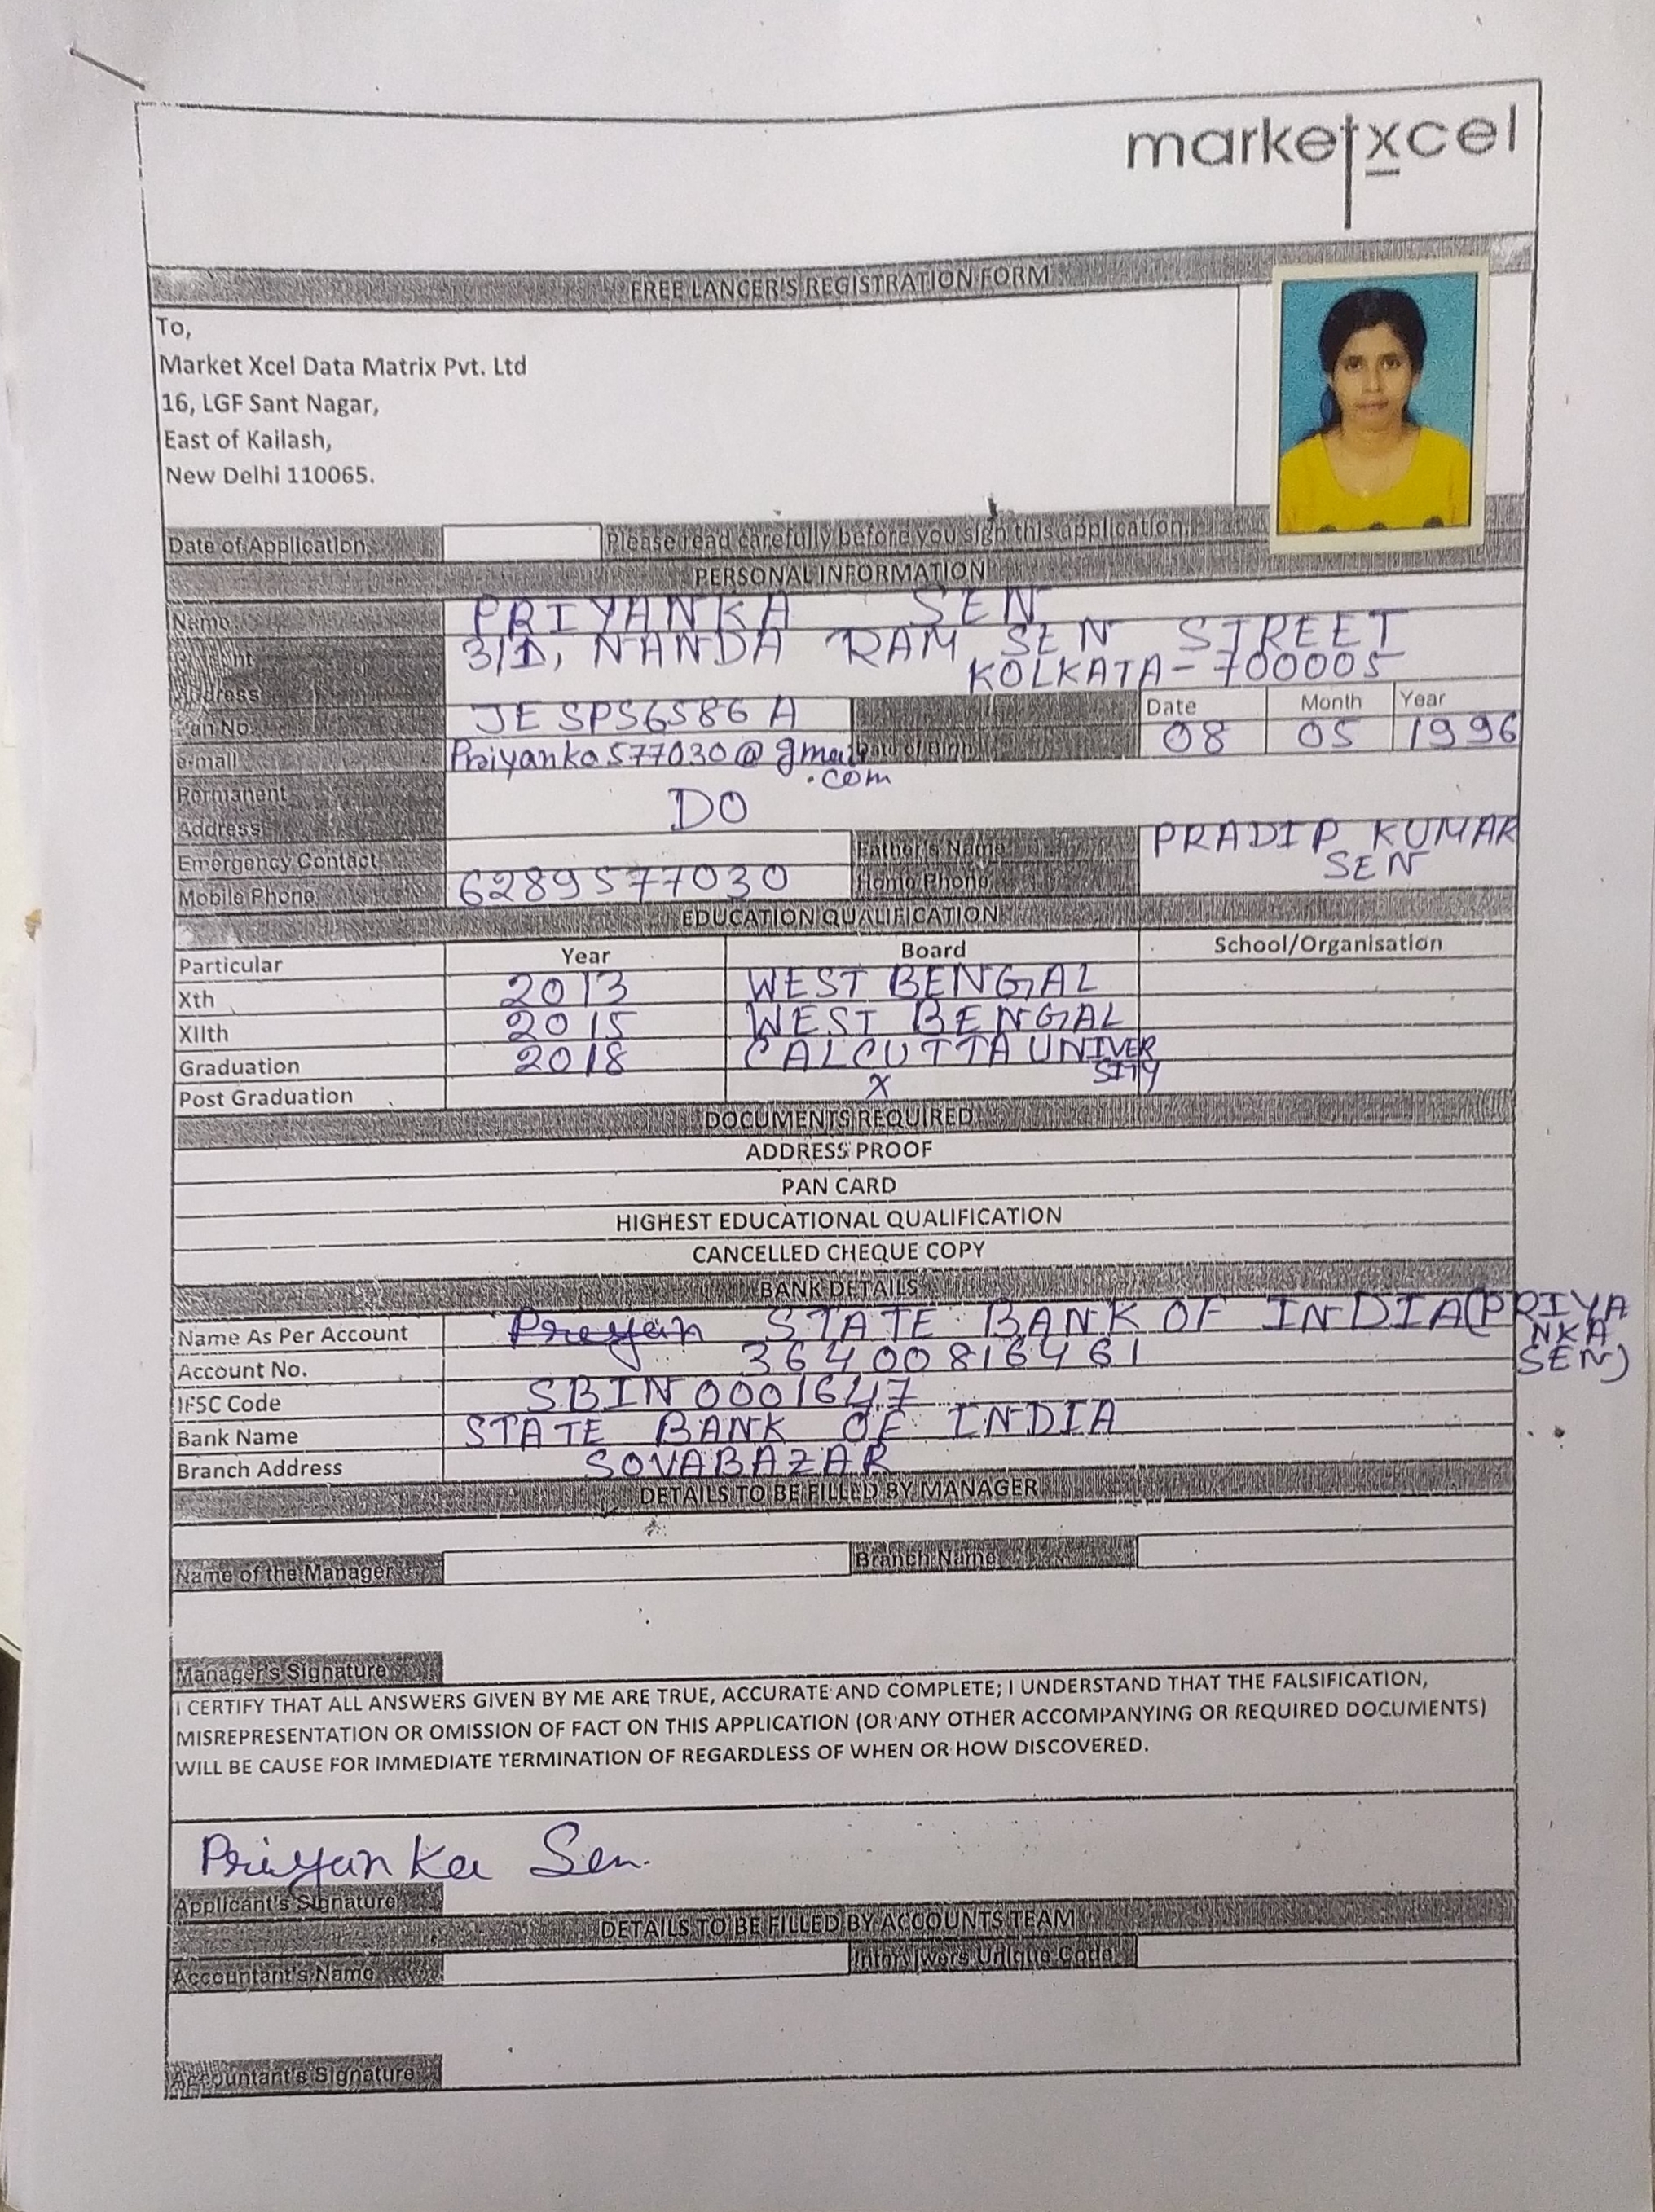 marketxcel
FREE LANCER'S REGISTRATION FORM
To,
Market Xcel Data Matrix Pvt. Ltd
16, LGF Sant Nagar,
East of Kailash,
New Delhi 110065.
Date of Application Please read carefully before you sign this application.
PERSONAL INFORMATION
Name PRIYANKA SEN
Address 3/1, NANDA RAM SEN STREET
KOLKATA - 700005
Pan No. JESPS6586A Date Month Year
e-mail Priyanka577030@gmail Date of Birth 08 05 1996
.com
Permanent
Address DO
Emergency Contact Father's Name PRADIP KUMAR
SEN
Mobile Phone 6289577030 Home Phone
EDUCATION QUALIFICATION
Particular Year Board School/Organisation
Xth 2013 WEST BENGAL
XIIth 2015 WEST BENGAL
Graduation 2018 CALCUTTA UNIVER
SITY
Post Graduation X
DOCUMENTS REQUIRED
ADDRESS PROOF
PAN CARD
HIGHEST EDUCATIONAL QUALIFICATION
CANCELLED CHEQUE COPY
BANK DETAILS
Name As Per Account STATE BANK OF INDIA (PRIYA
NKA
SEN)
Account No. 36400816461
IFSC Code SBIN0001647
Bank Name STATE BANK OF INDIA
Branch Address SOVABAZAR
DETAILS TO BE FILLED BY MANAGER
Name of the Manager Branch Name
Manager's Signature
I CERTIFY THAT ALL ANSWERS GIVEN BY ME ARE TRUE, ACCURATE AND COMPLETE; I UNDERSTAND THAT THE FALSIFICATION,
MISREPRESENTATION OR OMISSION OF FACT ON THIS APPLICATION (OR ANY OTHER ACCOMPANYING OR REQUIRED DOCUMENTS)
WILL BE CAUSE FOR IMMEDIATE TERMINATION OF REGARDLESS OF WHEN OR HOW DISCOVERED.
Priyanka Sen.
Applicant's Signature
DETAILS TO BE FILLED BY ACCOUNTS TEAM
Accountant's Name Interviwers Unique Code
Accountant's Signature